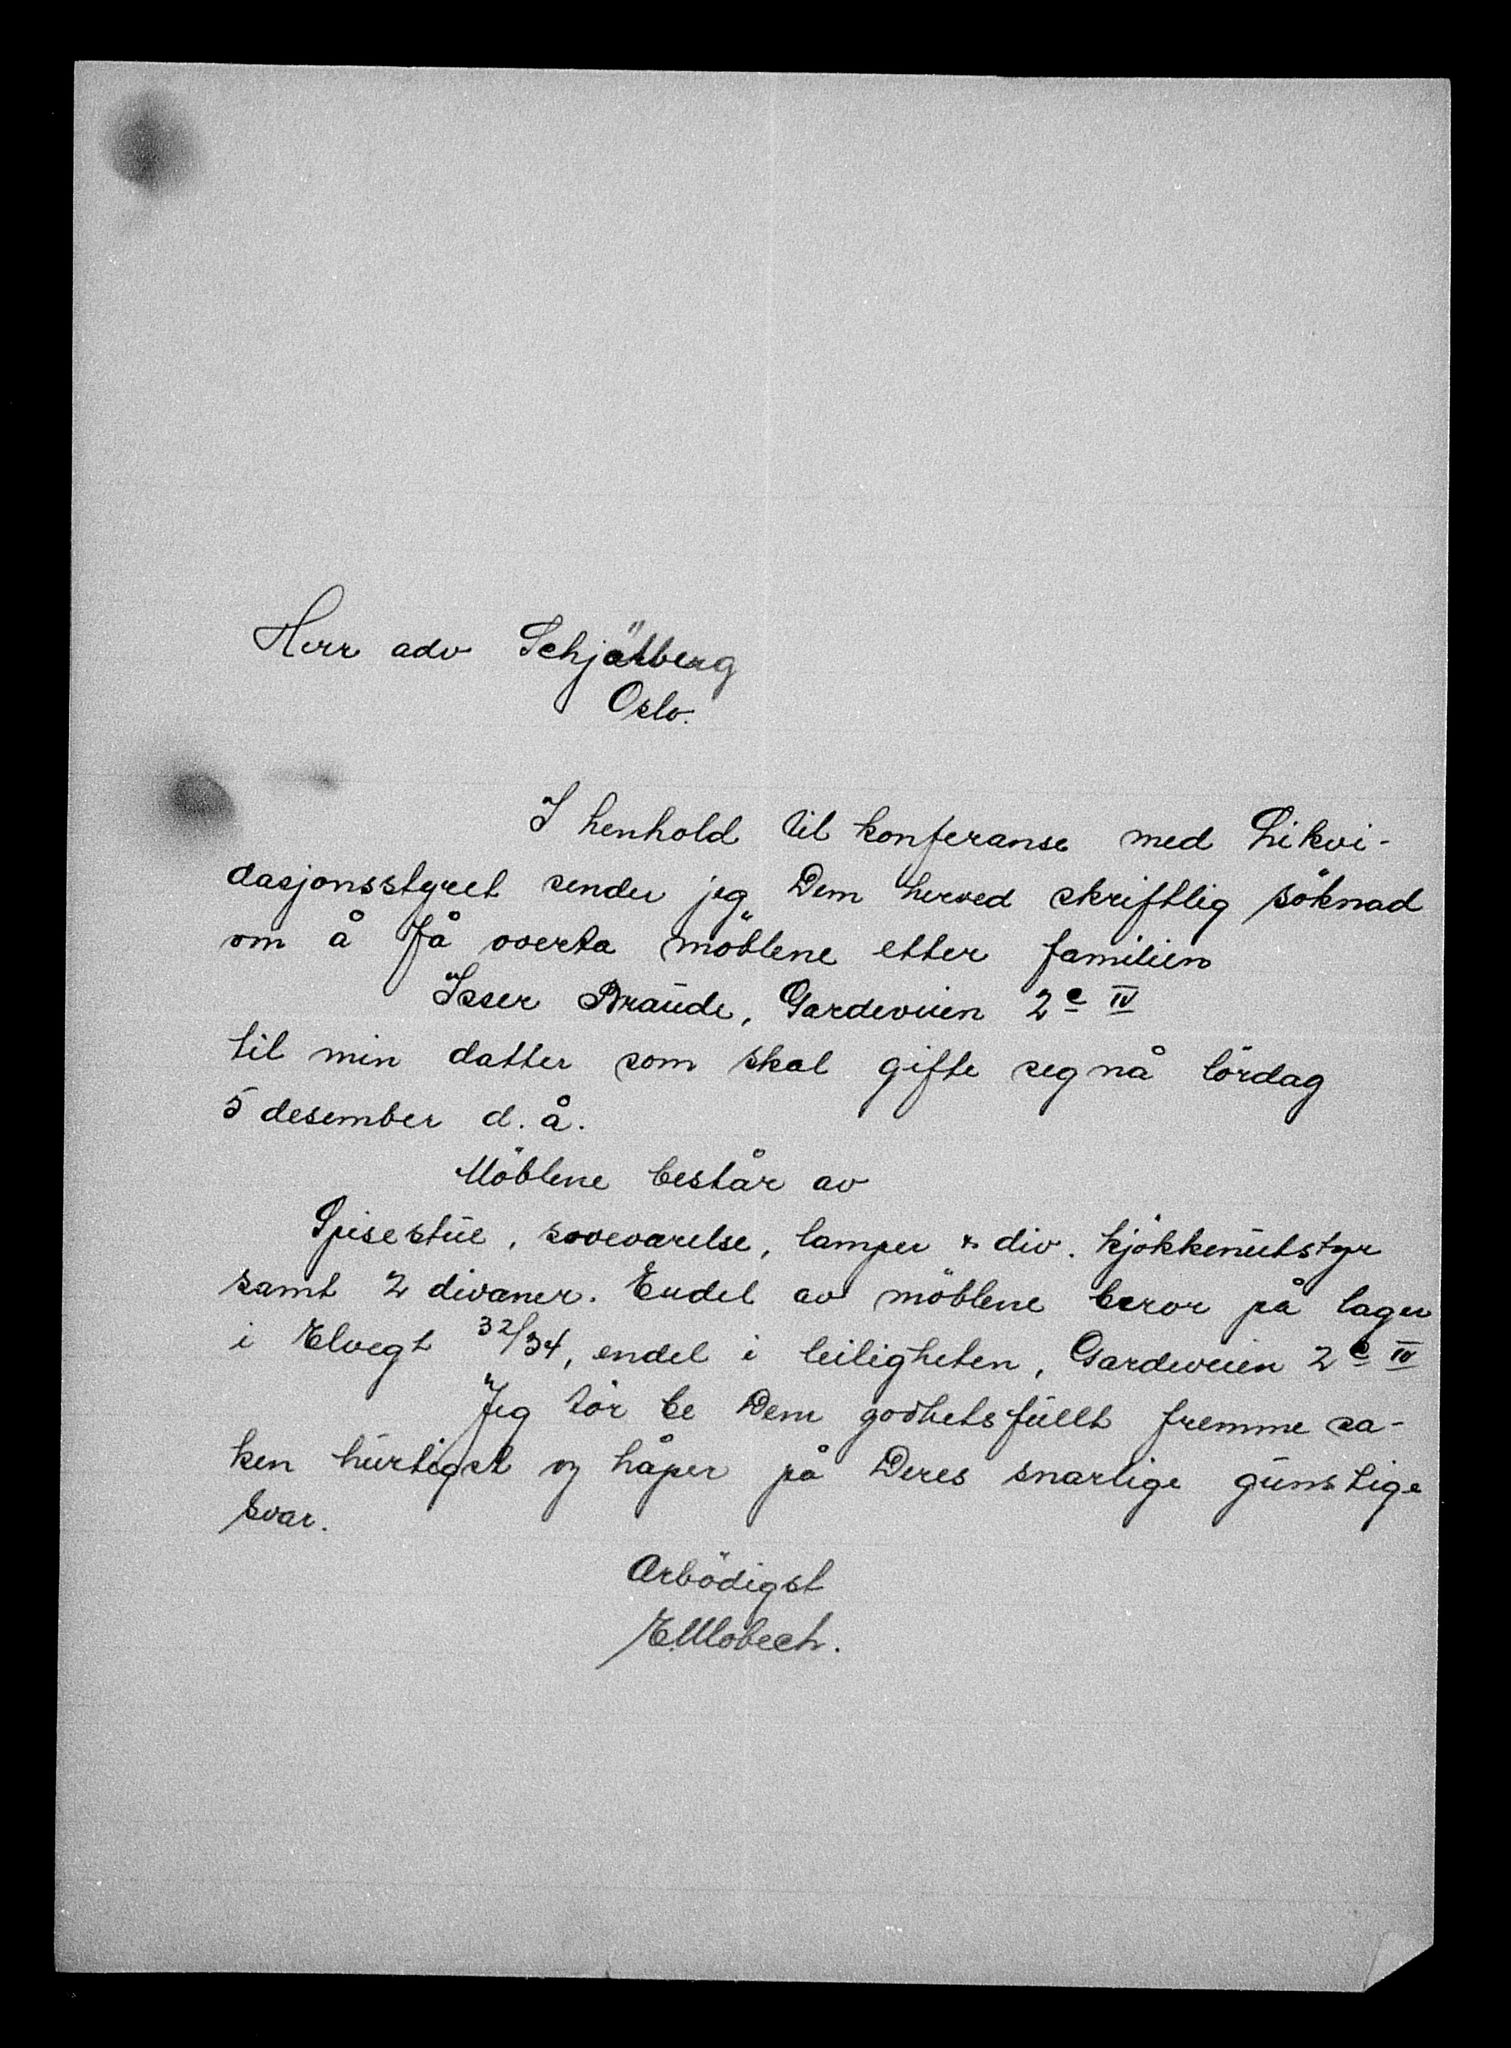 Herr adv Schjötberg
Oslo.
I henhold til konferanse med Likvi-
dasjonsstyret sender jeg Dem herved skriftlig söknad
om å få overta möblene etter familien
Isser Braude, Gardeveien 2c IV
til min datter som skal gifte seg nå lördag
5 desember d. å.
Möblene består av
Spisestue, soveværelse, lamper & div. kjökkenutstyr
samt 2 divaner. Endel av möblene beror på lager
i Elvegt 32/34, endel i leiligheten, Gardeveien 2c IV
Jeg tör be Dem godhetsfullt fremme sa-
ken hurtigst og håper på Deres snarlige gunstige
svar.
Ærbödigst
E. Mobech.